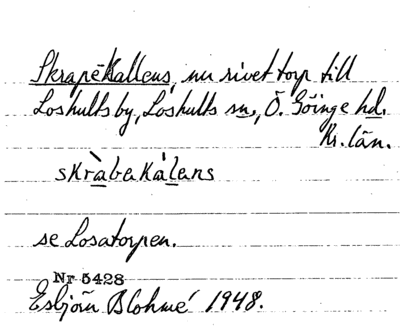 Skrapékallens, nu rivet torp till
Loshults by, Loshults sn, Ö. Göinge hd.
Kr. län.
skràbekálens
se Losatorpen.
Nr 5428
Esbjörn Blohmé 1948.